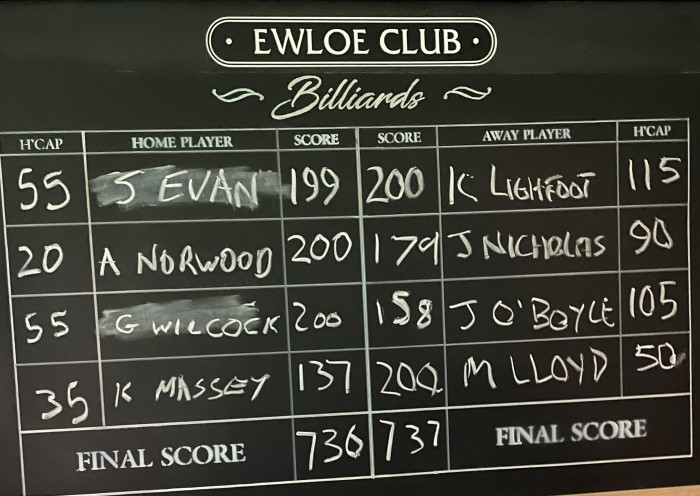 · EWLOE CLUB ·
Billiards
H'CAP HOME PLAYER SCORE SCORE AWAY PLAYER H'CAP
55 S EVAN 199 200 K LIGHTFOOT 115
20 A NORWOOD 200 179 J NICHOLAS 90
55 G WILCOCK 200 158 J O'BOYLE 105
35 K MASSEY 137 200 M LLOYD 50
FINAL SCORE 736 737 FINAL SCORE